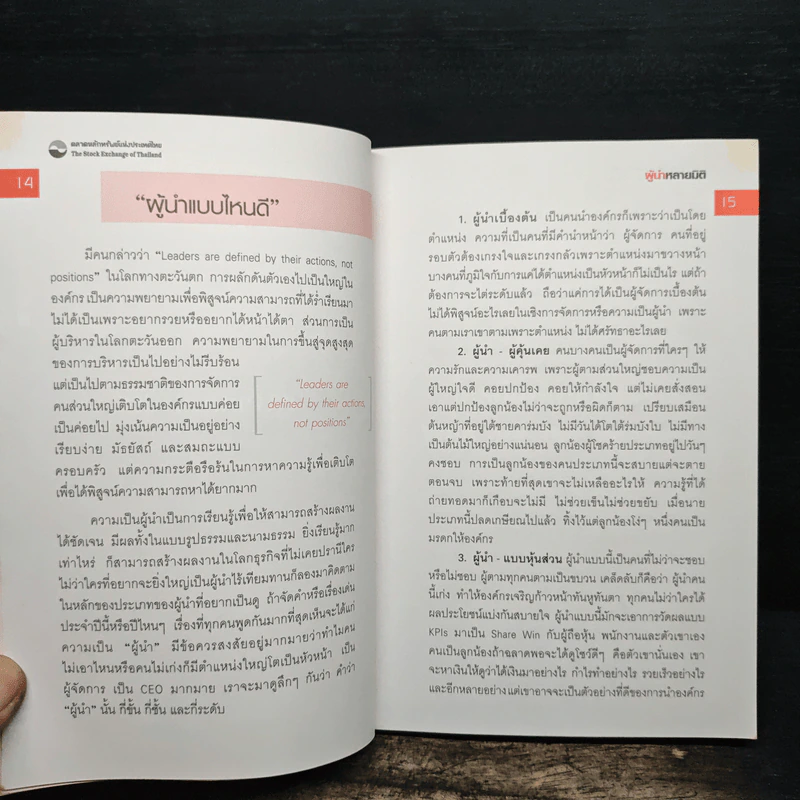 ตลาดหลักทรัพย์แห่งประเทศไทย
The Stock Exchange of Thailand
14
“ผู้นำแบบไหนดี”
มีคนกล่าวว่า “Leaders are defined by their actions, not
positions” ในโลกทางตะวันตก การผลักดันตัวเองไปเป็นใหญ่ใน
องค์กร เป็นความพยายามเพื่อพิสูจน์ความสามารถที่ได้ร่ำเรียนมา
ไม่ได้เป็นเพราะอยากรวยหรืออยากได้หน้าได้ตา ส่วนการเป็น
ผู้บริหารในโลกตะวันออก ความพยายามในการขึ้นสู่จุดสูงสุด
ของการบริหารเป็นไปอย่างไม่รีบร้อน
แต่เป็นไปตามธรรมชาติของการจัดการ
คนส่วนใหญ่เติบโตในองค์กรแบบค่อย
เป็นค่อยไป มุ่งเน้นความเป็นอยู่อย่าง
เรียบง่าย มัธยัสถ์ และสมถะแบบ
ครอบครัว แต่ความกระตือรือร้นในการหาความรู้เพื่อเติบโต
เพื่อได้พิสูจน์ความสามารถหาได้ยากมาก
“Leaders are
defined by their actions,
not positions”
ความเป็นผู้นำเป็นการเรียนรู้เพื่อให้สามารถสร้างผลงาน
ได้ชัดเจน มีผลทั้งในแบบรูปธรรมและนามธรรม ยิ่งเรียนรู้มาก
เท่าไหร่ ก็สามารถสร้างผลงานในโลกธุรกิจที่ไม่เคยปรานีใคร
ไม่ว่าใครที่อยากจะยิ่งใหญ่เป็นผู้นำไร้เทียมทานก็ลองมาคิดตาม
ในหลักของประเภทของผู้นำที่อยากเป็นดู ถ้าจัดคำหรือเรื่องเด่น
ประจำปีนี้หรือปีไหนๆ เรื่องที่ทุกคนพูดกันมากที่สุดเห็นจะได้แก่
ความเป็น “ผู้นำ” มีข้อควรสงสัยอยู่มากมายว่าทำไมคน
ไม่เอาไหนหรือคนไม่เก่งก็มีตำแหน่งใหญ่โตเป็นหัวหน้า เป็น
ผู้จัดการ เป็น CEO มากมาย เราจะมาดูลึกๆ กันว่า คำว่า
“ผู้นำ” นั้น กี่ขั้น กี่ชั้น และกี่ระดับ
ผู้นำหลายมิติ
15
1. ผู้นำเบื้องต้น เป็นคนนำองค์กรก็เพราะว่าเป็นโดย
ตำแหน่ง ความที่เป็นคนที่มีคำนำหน้าว่า ผู้จัดการ คนที่อยู่
รอบตัวต้องเกรงใจและเกรงกลัวเพราะตำแหน่งมาขวางหน้า
บางคนที่ภูมิใจกับการแค่ได้ตำแหน่งเป็นหัวหน้าก็ไม่เป็นไร แต่ถ้า
ต้องการจะไต่ระดับแล้ว ถือว่าแค่การได้เป็นผู้จัดการเบื้องต้น
ไม่ได้พิสูจน์อะไรเลยในเชิงการจัดการหรือความเป็นผู้นำ เพราะ
คนตามเราเขาตามเพราะตำแหน่ง ไม่ได้ศรัทธาอะไรเลย
2. ผู้นำ - ผู้คุ้นเคย คนบางคนเป็นผู้จัดการที่ใครๆ ให้
ความรักและความเคารพ เพราะผู้ตามส่วนใหญ่ชอบความเป็น
ผู้ใหญ่ใจดี คอยปกป้อง คอยให้กำลังใจ แต่ไม่เคยสั่งสอน
เอาแต่ปกป้องลูกน้องไม่ว่าจะถูกหรือผิดก็ตาม เปรียบเสมือน
ต้นหญ้าที่อยู่ใต้ชายคาร่มบัง ไม่มีวันได้โตใต้ร่มบังใบ ไม่มีทาง
เป็นต้นไม้ใหญ่อย่างแน่นอน ลูกน้องผู้โชคร้ายประเภทอยู่ไปวันๆ
คงชอบ การเป็นลูกน้องของคนประเภทนี้จะสบายแต่จะตาย
ตอนจบ เพราะท้ายที่สุดเขาจะไม่เหลืออะไรให้ ความรู้ที่ได้
ถ่ายทอดมาก็เกือบจะไม่มี ไม่ช่วยเข็นไม่ช่วยขยับ เมื่อนาย
ประเภทนี้ปลดเกษียณไปแล้ว ทิ้งไว้แต่ลูกน้องโง่ๆ หนึ่งคนเป็น
มรดกให้องค์กร
3. ผู้นำ - แบบหุ้นส่วน ผู้นำแบบนี้เป็นคนที่ไม่ว่าจะชอบ
หรือไม่ชอบ ผู้ตามทุกคนตามเป็นขบวน เคล็ดลับก็คือว่า ผู้นำคน
นี้เก่ง ทำให้องค์กรเจริญก้าวหน้าทันหูทันตา ทุกคนไม่ว่าใครได้
ผลประโยชน์แบ่งกันสบายใจ ผู้นำแบบนี้มักจะเอาการวัดผลแบบ
KPIs มาเป็น Share Win กับผู้ถือหุ้น พนักงานและตัวเขาเอง
คนเป็นลูกน้องถ้าฉลาดพอจะได้ดูโชว์ดีๆ คือตัวเขานั่นเอง เขา
จะหาเงินให้ดูว่าได้เงินมาอย่างไร กำไรทำอย่างไร รวยเร็วอย่างไร
และอีกหลายอย่าง แต่เขาอาจจะเป็นตัวอย่างที่ดีของการนำองค์กร